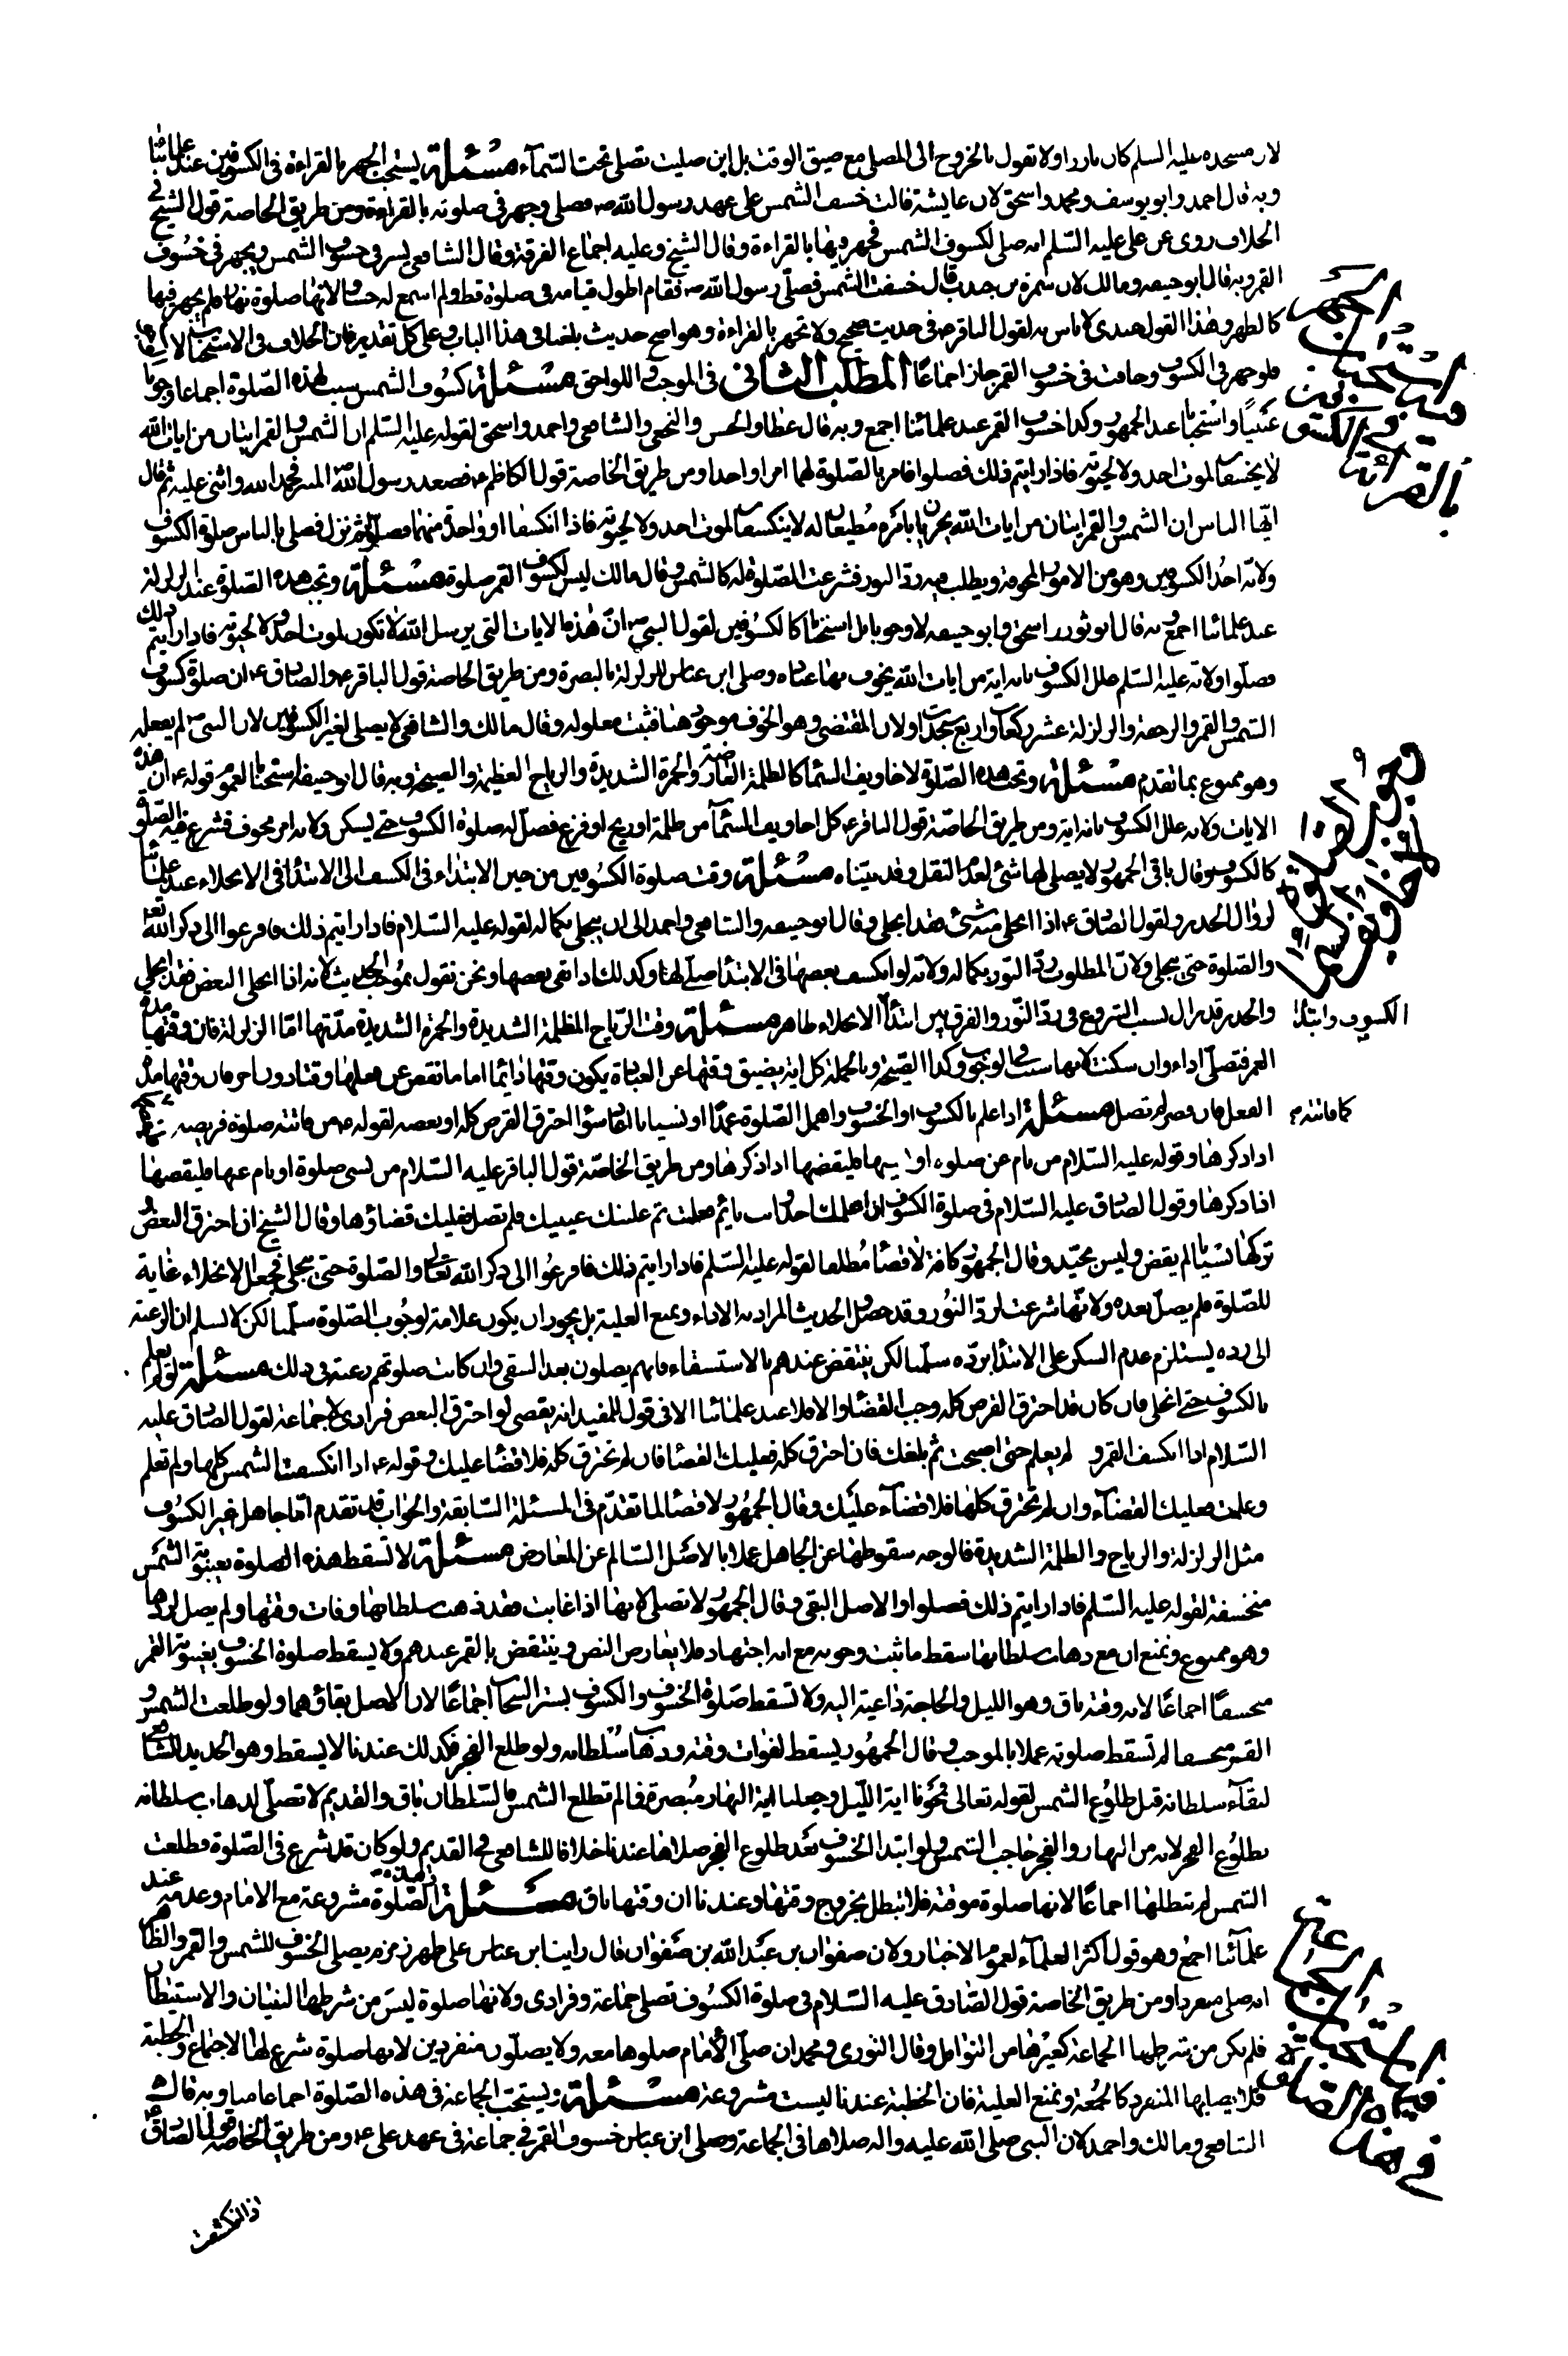 لان مسجده عليه السلم كان بارزا ولا نقول بالخروج الى المصلى مع ضيق الوقت بل اين صليت تصلى تحت السّمآء مسئلة يستحب الجهر بالقراءة فى الكسوفين عند علمائنا
وبه قال احمد وابو يوسف ومحمد واسحق لان عايشة قالت خسف الشمس على عهد رسول الله ص فصلى وجهر فى صلوته بالقراءة ومن طريق الخاصة قول الشيخ فى
الخلاف روى عن على عليه السّلم انه صلى لكسوف الشمس فجهر فيها بالقراءة وقال الشيخ وعليه اجماع الفرقة وقال الشافعى يسر فى خسوف الشمس ويجهر فى خسوف
القمر وبه قال ابو حنيفه ومالك لان سمرة بن جندب قال خسفت الشمس فصلّى رسول الله ص فقام اطول قيامه فى صلوة قط ولم اسمع له حسّا ولانها صلوة نهار فلم يجهر فيها
كالظهر وهذا القول عندى لا باس به لقول الباقر ع فى حديث صحيح ولا تجهر بالقراءة وهو اصح حديث بلغنا فى هذا الباب وعلى كل تقدير فان الخلاف فى الاستحباب
فلو جهر فى الكسوف وخافت فى خسوف القمر جاز اجماعًا المطلب الثانى فى الموجب واللواحق مسئلة كسوف الشمس سبب لهذه الصّلوة اجماعا وجوبا
عندنا واستحبابا عند الجمهور وكذا خسوف القمر عند علمائنا اجمع وبه قال عطا والحسن والنخعى والشافعى واحمد واسحق لقوله عليه السّلم ان الشمس والقمر ايتان من ايات الله
لا يخسفان لموت احد ولا لحيوته فاذا رايتم ذلك فصلوا فامر بالصّلوة لهما امرا واحدا ومن طريق الخاصة قول الكاظم ع فصعد رسول الله ص المنبر فحمد الله واثنى عليه ثم قال
ايّها الناس ان الشمس والقمر ايتان من ايات الله يجريان بامره مطيعان له لا ينكسفان لموت احد ولا لحيوته فاذا انكسفا او واحدة منهما فصلوا ثم نزل فصلى بالناس صلوة الكسوف
ولانه احد الكسوفين وهو من الامور المخوفة ويطلب فيه ردّ النور فشرعت الصّلوة له كالشمس وقال مالك ليس لكسوف القمر صلوة مسئلة وتجب هذه الصّلوة عند الزلزلة
عند علمائنا اجمع وبه قال ابو ثور واسحق وابو حنيفه لا وجوبا بل استحبابا كالكسوفين لقول النبى ص انّ هذه الايات التى يرسل الله لا تكون لموت احد ولا لحيوته فاذا رايتم ذلك
فصلّوا ولانه عليه السّلم علل الكسوف بانه اية من ايات الله يخوف بها عباده وصلى ابن عباس للزلزلة بالبصرة ومن طريق الخاصة قول الباقر ع والصادق ع ان صلوة كسوف
الشمس والقمر والرجفة والزلزلة عشر ركعات واربع سجدات ولان المقتضى وهو الخوف موجود هنا فثبت معلوله وقال مالك والشافعى لا يصلى لغير الكسوفين لان النبى ص لم يفعله
وهو ممنوع بما تقدم مسئلة وتجب هذه الصّلوة لاخاويف السّما كالظلمة العارضة والحمرة الشديدة والرياح العظيمة والصيحة وبه قال ابو حنيفة استحبابا لعموم قوله ع ان هذه
الايات ولانه علل الكسوف بانه اية ومن طريق الخاصّة قول الباقر ع كل اخاويف السّمآ من ظلمة او ريح او فزع فصلّ له صلوة الكسوف حتى يسكن ولانه امر مخوف فشرع فيه الصّلوة
كالكسوف وقال باقى الجمهور لا يصلى لها شئ لعدم النقل وقد بيّناه مسئلة وقت صلوة الكسوفين من حين الابتداء فى الكسف الى الابتدا فى الانجلاء عند علمائنا
لزوال الحذر ولقول الصادق ع اذا انجلى منه شئ فقد انجلى وقال ابو حنيفه والشافعى واحمد الى ان ينجلى بكماله لقوله عليه السّلام فاذا رايتم ذلك فافزعوا الى ذكر الله تعالى
والصّلوة حتى ينجلى ولان المطلوب ردّ النّور بكماله ولانه لو انكسف بعضها فى الابتدا صلى لها وكذلك اذا بقى بعضها ونحن نقول بموجب الحديث لانه اذا انجلى البعض فقد انجلى
والحذر قد يزال بسبب الشروع فى ردّ النّور والفرق بين ابتدآ الانجلاء ظاهر مسئلة وقت الرّياح المظلمة الشديدة والحمرة الشديدة مدّتها امّا الزلزلة فان وقتها مدة
العمر فتصلّى اداء وان سكنت لانها سبب فى الوجوب وكذا الصيحة وبالجملة كل اية يضيق وقتها عن العبادة يكون وقتها دائما اما ما نقص عن فعلها وقتا دون اخر فان وقتها مدة
الفعل فان قصر لم تصل مسئلة اذا علم بالكسوف او الخسوف واهمل الصّلوة عمدًا او نسيانا اعادها سوآ احترق القرص كله او بعضه لقوله ع من فاتته صلوة فريضة
اذا ذكرها وقوله عليه السّلام من نام عن صلوة او نسيها فليقضها اذا ذكرها ومن طريق الخاصّة قول الباقر عليه السّلام من نسى صلوة او نام عنها فليقضها
اذا ذكرها وقول الصادق عليه السّلام فى صلوة الكسوف ان فلم تصل فعليك قضاؤها وقال الشيخ ان احترق البعض و
تركها نسيانا لم يقض وليس بجيّد وقال الجمهور كافة لا قضا مطلقا لقوله عليه السّلم فاذا رايتم ذلك فافزعوا الى ذكر الله تعالى والصّلوة حتى ينجلى فجعل الانجلاء غاية
للصّلوة فلم يصلّ بعده ولانّها شرعت لردّ النّور وقد حصل الحديث المراد به الاداء ونمنع العلية بل يجوز ان يكون علامة لوجوب الصّلوة سلّمنا لكن لا نسلم ان الرغبة
الى رده يستلزم عدم الشكر على الابتدا بردّه سلّمنا لكن ينتقض عندهم بالاستسقاء فانهم يصلون بعد السقى وان كانت صلوتهم رغبة فى ذلك مسئلة لو لم يعلم
بالكسوف حتى انجلى فان كان قد احترق القرص كله وجب القضا والا فلا عند علمائنا الا فى قول للمفيد انه يقضى لو احترق البعض فرادى لا جماعة لقول الصادق عليه
السّلام اذا انكسف القمر و لم يعلم حتى اصبحت ثم بلغك فان احترق كله فعليك القضا فان لم يحترق كله فلا قضا عليك وقوله ع اذا انكسفت الشمس كلها ولم تعلم
وعلمت فعليك القضآء وان لم تحترق كلها فلا قضآء عليك وقال الجمهور لا قضا لما تقدّم فى المسئلة السّابقة والجواب قد تقدم امّا جاهل غير الكسوف
مثل الزلزلة والرياح والظلمة الشديدة فالوجه سقوطها عن الجاهل عملا بالاصل السّالم عن المعارض مسئلة لا تسقط هذه الصلوة بغيبوبة الشمس
منخسفة لقوله عليه السّلم فاذا رايتم ذلك فصلوا والاصل البقى وقال الجمهور لا تصلى لانها اذا غابت فقد ذهب سلطانها وفات وقتها ولم يصل لردها
وهو ممنوع ونمنع ان مع ذهاب سلطانها سقط ما ثبت وجوبه مع انه اجتهاد فلا يعارض النص وينتقض بالقمر عندهم ولا يسقط صلوة الخسوف بغيبوبة القمر
منخسفًا اجماعًا لانه وقته باق وهو الليل والحاجة داعية اليه ولا تسقط صلوة الخسوف والكسوف بستر السّحاب اجماعًا لان الاصل بقاؤهما ولو طلعت الشمس و
القمر منخسف لم تسقط صلوته عملا بالموجب وقال الجمهور يسقط لفوات وقته وذهاب سلطانه ولو طلع الفجر فكذلك عندنا لا يسقط وهو الجديد للشافعى
لبقآء سلطانه قبل طلوع الشمس لقوله تعالى فمحونا اية اللّيل وجعلنا اية النهار مبصرة فما لم تطلع الشمس فالسّلطان باق والقديم لا تصلّى لذهاب سلطانه
بطلوع الفجر لانه من النهار والفجر حاجب الشمس ولو ابتدا الخسوف بعد طلوع الفجر صلاها عندنا خلافا للشافعى فى القديم ولو كان قد شرع فى الصّلوة فطلعت
الشمس لم تبطلها اجماعًا لانها صلوة موقتة فلا تبطل بخروج وقتها وعندنا ان وقتها باق مسئلة هذه الصّلوة مشروعة مع الامام وعدمه عند
علمآئنا اجمع وهو قول اكثر العلمآء لعموم الاخبار ولان صفوان بن عبد الله بن صفوان قال راينا ابن عباس على ظهر زمزم يصلى الخسوف للشمس والقمر والظاهر
انه صلى منفردا ومن طريق الخاصة قول الصّادق عليه السّلام فى صلوة الكسوف تصلى جماعة وفرادى ولانها صلوة ليس من شرطها البنيان والاستيطان
فلم يكن من شرطها الجماعة كغيرها من النوافل وقال الثورى ومحمد ان صلّى الامام صلوها معه ولا يصلّون منفردين لانها صلوة شرع لها الاجتماع والخطبة
فلا يصليها المنفرد كالجمعة ونمنع العلية فان الخطبة عندنا ليست مشروعة مسئلة ويستحب الجماعة فى هذه الصّلوة اجماعا منا وبه قال
الشافعى ومالك واحمد لان النبى صلى الله عليه واله صلاها فى الجماعة وصلى ابن عباس خسوف القمر فى جماعة فى عهد على ع ومن طريق الخاصة قول الصّادق ع
اذا انكسفت
استحباب الجهر
فى الكسوفين
بالقرائة
الكسوف وابتدا
كما فاتته
استحباب الجماعة
فى هذه الصلوة